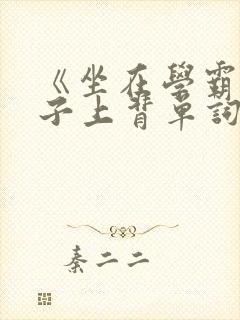 《坐在學霸
子上背單詞
秦二二